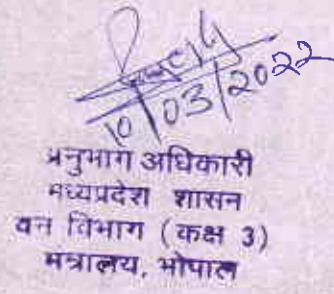 10/03/2022
अनुभाग अधिकारी
मध्यप्रदेश शासन
वन विभाग (कक्ष 3)
मंत्रालय, भोपाल